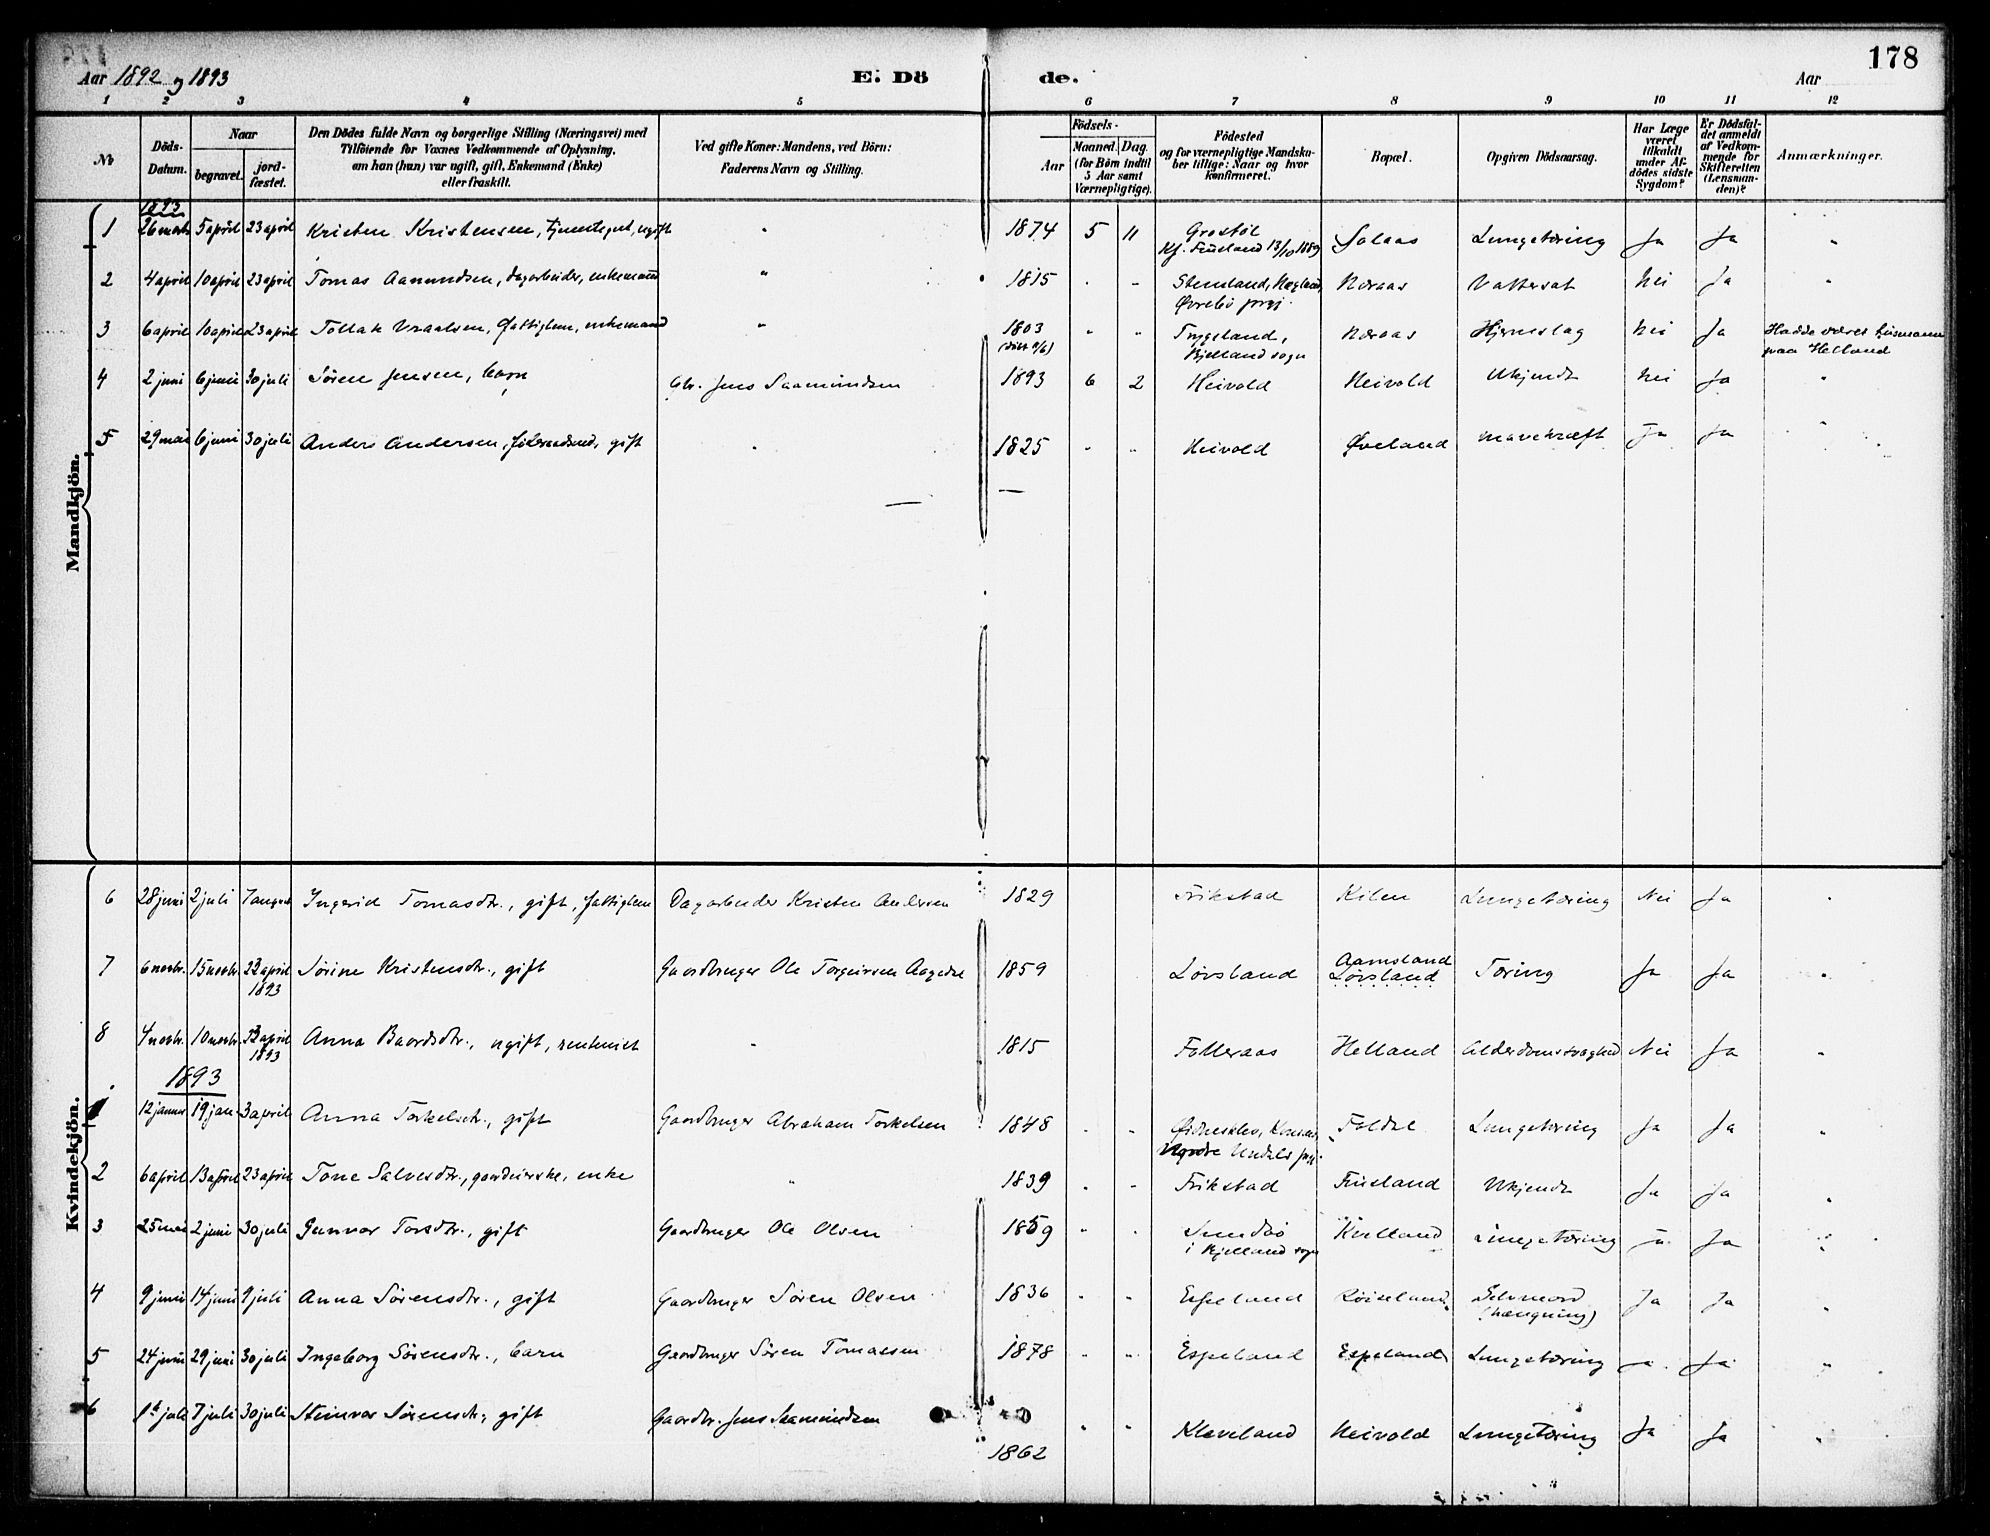 178
Aar 1892 og 1893 E. Dö de. Aar
1 2 3 4 5 6 7 8 9 10 11 12
No Döds-Datum. Naar begravet. jord-fæstet. Den Dödes fulde Navn og borgerlige Stilling (Næringsvei) med Tilföiende for Voxnes Vedkommende af Oplysning, om han (hun) var ugift, gift, Enkemand (Enke) eller fraskilt. Ved gifte Koner: Mandens, ved Börn: Faderens Navn og Stilling. Födsels- Aar Maaned. Dag. (for Börn indtil 5 Aar samt Værnepligtige). Födested og for værnepligtige Mandska-ber tillige: Naar og hvor konfirmeret. Bopæl. Opgiven Dödsaarsag. Har Læge været tilkaldt under Af-dödes sidste Sygdom? Er Dödsfal-det anmeldt af Vedkom-mende for Skifteretten (Lensman-den)? Anmærkninger.
Mandkjön.
1893
1 26 marts 5 april 23 april Kristen Kristensen, tjenestegut, ugift " 1874 5 11 Grostöl Solaas Lungetæring Ja Ja "
Kf. Finsland 13/10 1889
2 4 april 10 april 23 april Tomas Aanundsen, dagarbeider, enkemand " 1815 " " Stensland, Hægland, Næraas Vattersot Nei Ja "
Øvrebö prgj.
3 6 april 10 april 23 april Tollak Vraalsen, fattiglem, enkemand " 1803 " " Trygsland, Næraas Hjerneslag Nei Ja Hadde været husmann
Bjelland sogn paa Helland
4 2 juni 6 juni 30 juli Sören Jensen, barn Gbr. Jens Saamundsen 1893 6 2 Heivold Heivold Ukjendt Nei Ja "
5 29 mai 6 juni 30 juli Anders Andersen, föderaadsmd, gift " 1825 " " Heivold Øveland mavekræft Ja Ja "
Kvindekjön.
6 28 juni 2 juli 7 august Ingerid Tomasdtr., gift, fattiglem Dagarbeider Kristen Andersen 1829 Frikstad Kilen Lungetæring Nei Ja "
7 6 novbr. 15 novbr. 23 april 1893 Sörine Kristensdtr., gift Gaardbruger Ole Torgeirsen Aagedal 1859 Lövsland Aamsland Lövsland Tæring Ja Ja "
8 4 novbr. 10 novbr. 23 april 1893 Anna Baardsdtr., ugift, rentenist " 1815 Folleraas Helland Alderdomssvaghed Nei Ja "
1893
1 12 januar 19 jan. 3 april Anna Torkelsdtr., gift Gaardbruger Abraham Torkelsen 1848 " " Foldal Lungetæring Ja Ja "
Nordre Undals prgj.
2 6 april 13 april 23 april Tone Salvesdtr., gardeierske, enke " 1839 " " Frikstad Finsland Ukjendt Ja Ja "
3 25 mai 2 juni 30 juli Gunvor Torsdtr., gift Gaardbruger Ole Olsen 1859 " " Sundbö Lungetæring Ja Ja "
i Bjelland sogn
4 9 juni 14 juni 9 juli Anna Sörensdtr., gift Gaardbruger Sören Olsen 1836 " " Espeland Röiseland Selvmord Ja Ja "
(hængning)
5 24 juni 29 juni 30 juli Ingeborg Sörensdtr., barn Gaardbruger Sören Tomassen 1878 " " Espeland Espeland Lungetæring Ja Ja "
6 1ste juli 7 juli 30 juli Steinvor Sörensdtr., gift Gaardbr. Jens Saamundsen 1862 " " Kleveland Heivold Lungetæring Ja Ja "